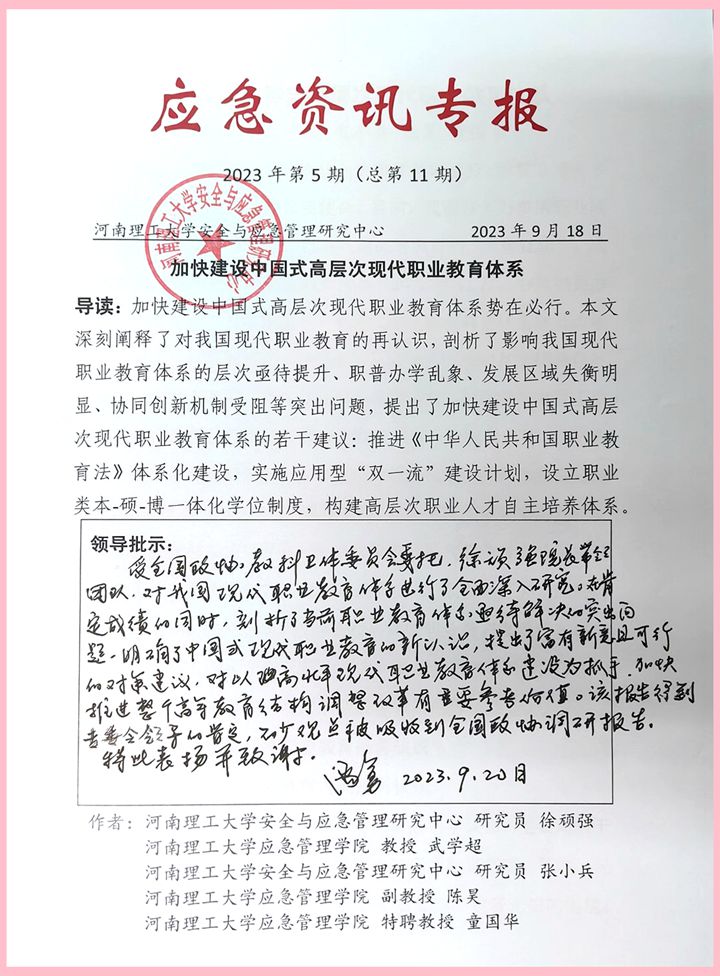 应急资讯专报
2023 年第 5 期（总第 11 期）
河南理工大学安全与应急管理研究中心 2023 年 9 月 18 日
河南理工大学安全与应急管理研究中心
加快建设中国式高层次现代职业教育体系
导读：加快建设中国式高层次现代职业教育体系势在必行。本文
深刻阐释了对我国现代职业教育的再认识，剖析了影响我国现代
职业教育体系的层次亟待提升、职普办学乱象、发展区域失衡明
显、协同创新机制受阻等突出问题，提出了加快建设中国式高层
次现代职业教育体系的若干建议：推进《中华人民共和国职业教
育法》体系化建设，实施应用型“双一流”建设计划，设立职业
类本-硕-博一体化学位制度，构建高层次职业人才自主培养体系。
领导批示：
受全国政协教科卫体委员会委托，徐顽强院长带领
团队，对我国现代职业教育体系进行了全面深入研究。在肯
定成绩的同时，剖析了当前职业教育体系亟待解决的突出问
题，明确了中国式现代职业教育的新认识，提出了富有新意且可行
的对策建议，对以提高水平现代职业教育体系建设为抓手，加快
推进整个高等教育结构调整改革有重要参考价值。该报告得到
专委会领导的肯定，不少观点被吸收到全国政协调研报告。
特此表扬并致谢。
2023.9.20日
作者：河南理工大学安全与应急管理研究中心 研究员 徐顽强
河南理工大学应急管理学院 教授 武学超
河南理工大学安全与应急管理研究中心 研究员 张小兵
河南理工大学应急管理学院 副教授 陈昊
河南理工大学应急管理学院 特聘教授 童国华